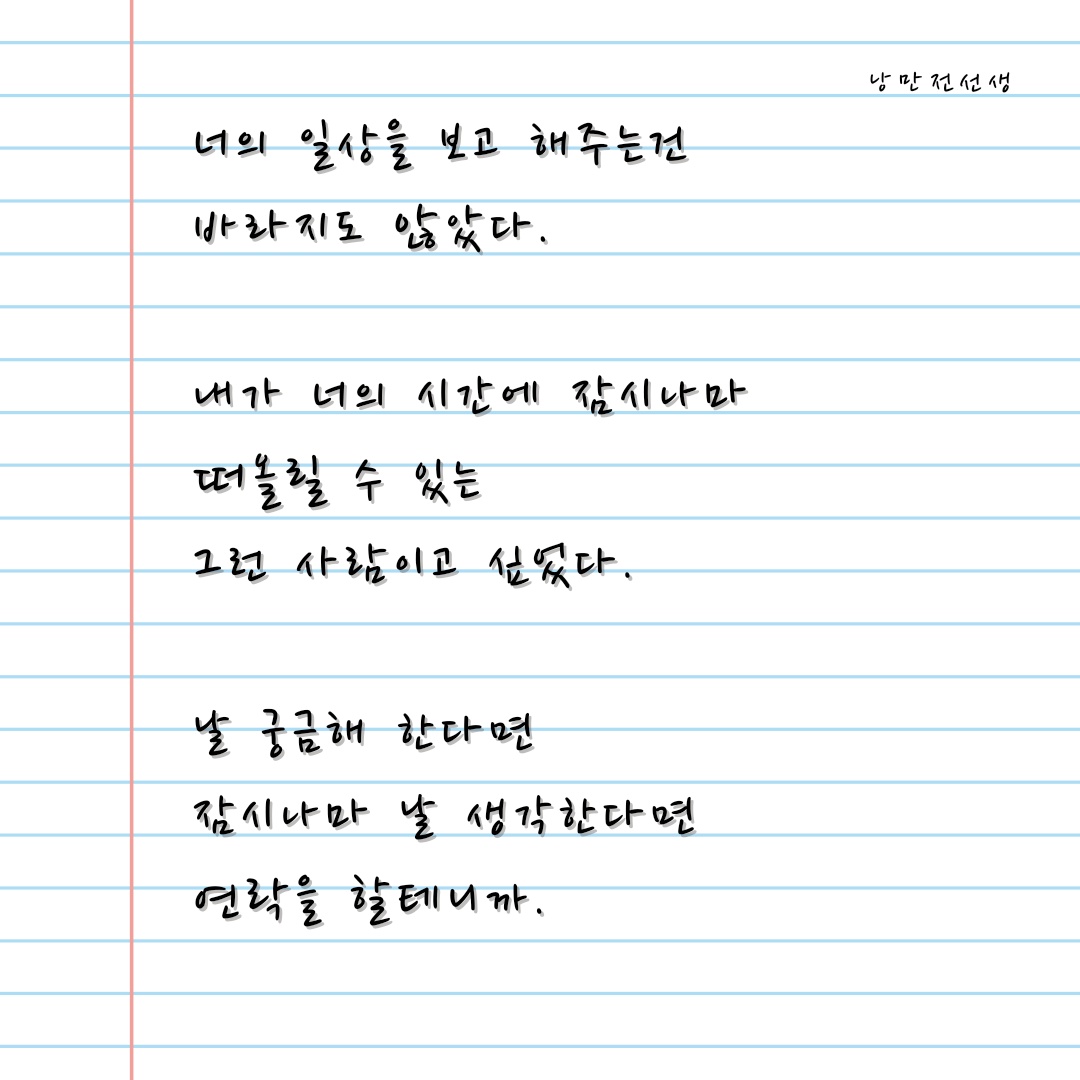 낭만전선생
너의 일상을 보고 해주는건
바라지도 않았다.
내가 너의 시간에 잠시나마
떠올릴 수 있는
그런 사람이고 싶었다.
날 궁금해 한다면
잠시나마 날 생각한다면
연락을 할테니까.